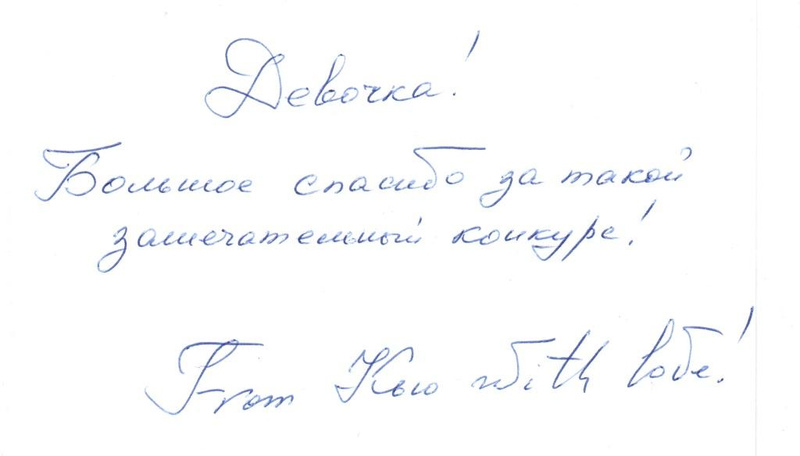 Девочка!
Большое спасибо за такой
замечательный конкурс!
From Кью with love!